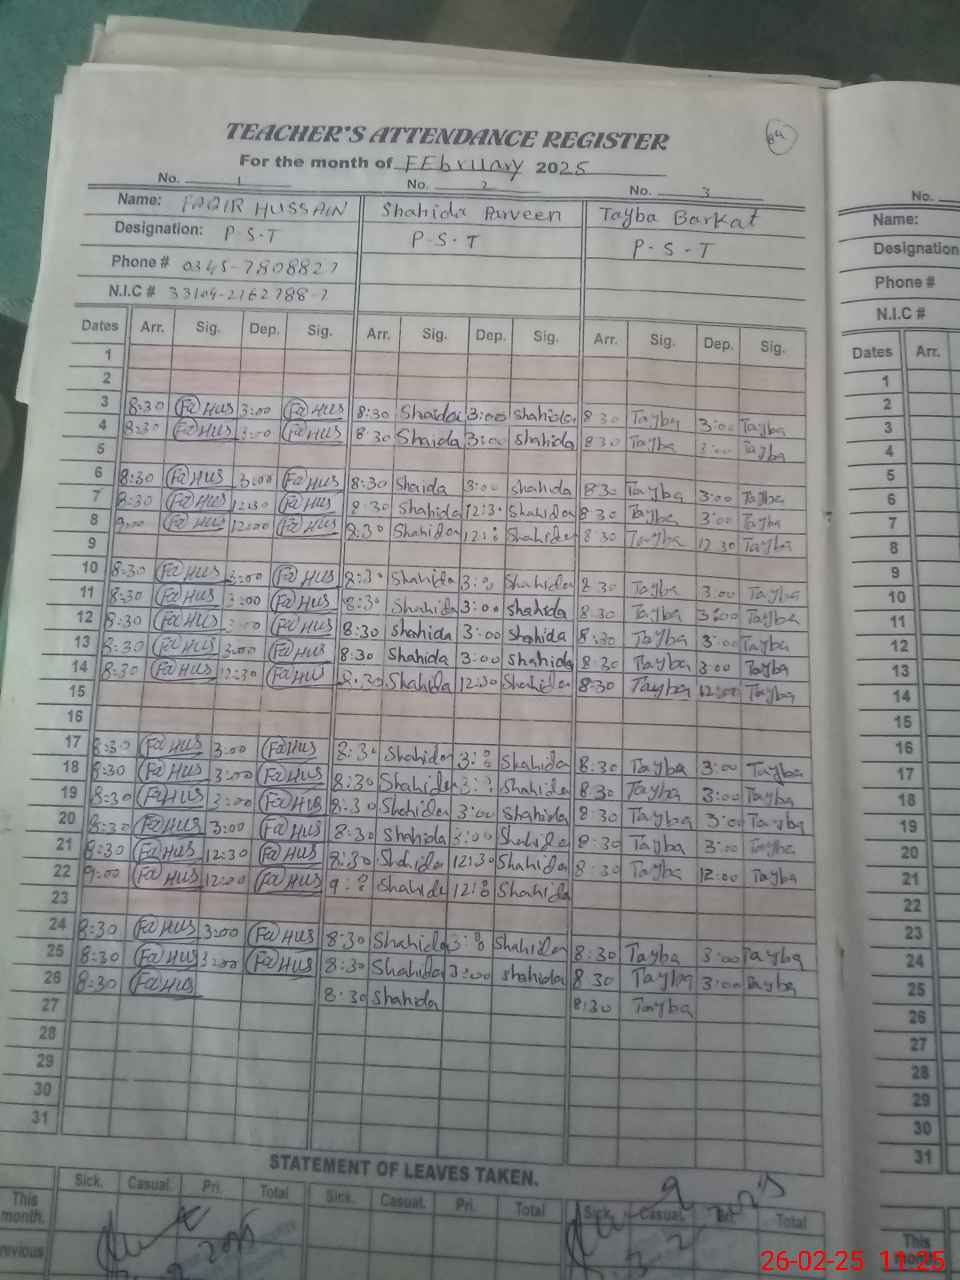 TEACHER'S ATTENDANCE REGISTER
For the month of FEbruary 2025
No. 1 No. 2 No. 3 No.
Name: FAQIR HUSSAIN Shahida Parveen Tayba Barkat Name:
Designation: P-S-T P-S-T P-S-T Designation
Phone # 0345-7808827 Phone #
N.I.C # 33104-2162788-7 N.I.C #
Dates Arr. Sig. Dep. Sig. Arr. Sig. Dep. Sig. Arr. Sig. Dep. Sig. Dates Arr.
1 1
2 2
3 8:30 Fa HUS 3:00 Fa HUS 8:30 Shaida 3:00 shahida 8 30 Tayba 3:00 Tayba 3
4 8:30 Fa HUS 3:00 Fa HUS 8 30 Shaida 3:00 shahida 8 30 Tayba 3:00 Tayba 4
5 5
6 8:30 Fa HUS 3:00 Fa HUS 8:30 Shaida 3:00 shahida 8 30 Tayba 3:00 Tayba 6
7 8:30 Fa HUS 12:30 Fa HUS 8:30 Shahida 12:30 Shahida 8 30 Tayba 3:00 Tayba 7
8 9:00 Fa HUS 12:00 Fa HUS 8:30 Shahida Shahida 8 30 Tayba 12 30 Tayba 8
9 9
10 8:30 Fa HUS 3:00 Fa HUS 8:30 Shahida 3:00 Shahida 8 30 Tayba 3:00 Tayba 10
11 8:30 Fa HUS 3:00 Fa HUS 8:30 Shahida 3:00 shahida 8:30 Tayba 3:00 Tayba 11
12 8:30 Fa HUS 3:00 Fa HUS 8:30 shahida 3:00 shahida 8:30 Tayba 3:00 Tayba 12
13 8:30 Fa HUS 3:00 Fa HUS 8:30 Shahida 3:00 shahida 8:30 Tayba 3:00 Tayba 13
14 8:30 Fa HUS 12:30 Fa HUS 8:30 Shahida 12:30 Shahida 8:30 Tayba 12:00 Tayba 14
15 15
16 16
17 8:30 Fa HUS 3:00 Fa HUS 8:30 Shahida 3:00 Shahida 8:30 Tayba 3:00 Tayba 17
18 8:30 Fa HUS 3:00 Fa HUS 8:30 Shahida 3:00 Shahida 8:30 Tayba 3:00 Tayba 18
19 8:30 Fa HUS 3:00 Fa HUS 8:30 Shahida 3:00 Shahida 8:30 Tayba 3:00 Tayba 19
20 8:30 Fa HUS 3:00 Fa HUS 8:30 Shahida 3:00 Shahida 8:30 Tayba 3:00 Tayba 20
21 8:30 Fa HUS 12:30 Fa HUS 8:30 Shahida 12:30 Shahida 8:30 Tayba 12:00 Tayba 21
22 9:00 Fa HUS 12:00 Fa HUS 9:00 Shahida 12:00 Shahida 22
23 23
24 8:30 Fa HUS 3:00 Fa HUS 8:30 Shahida 3:00 Shahida 8:30 Tayba 3:00 Tayba 24
25 8:30 Fa HUS 3:00 Fa HUS 8:30 Shahida 3:00 shahida 8 30 Tayba 3:00 Tayba 25
26 8:30 Fa HUS 8:30 Shahida 8:30 Tayba 26
27 27
28 28
29 29
30 30
31 31
STATEMENT OF LEAVES TAKEN.
Sick. Casual. Pri. Total Sick. Casual. Pri. Total Sick. Casual. Total
This month. This month
26-02-25 11:25